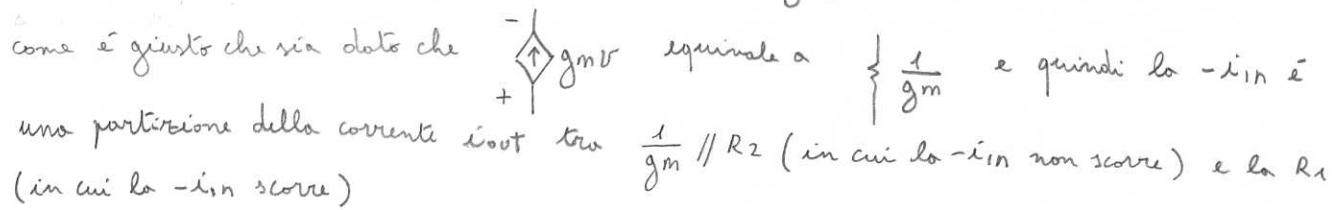 come é giusto che sia dato che - + ↑ gmv equivale a 1/gm e quindi la -iin é
una partizione della corrente iout tra 1/gm // R2 (in cui la -iin non scorre) e la R1
(in cui la -iin scorre)